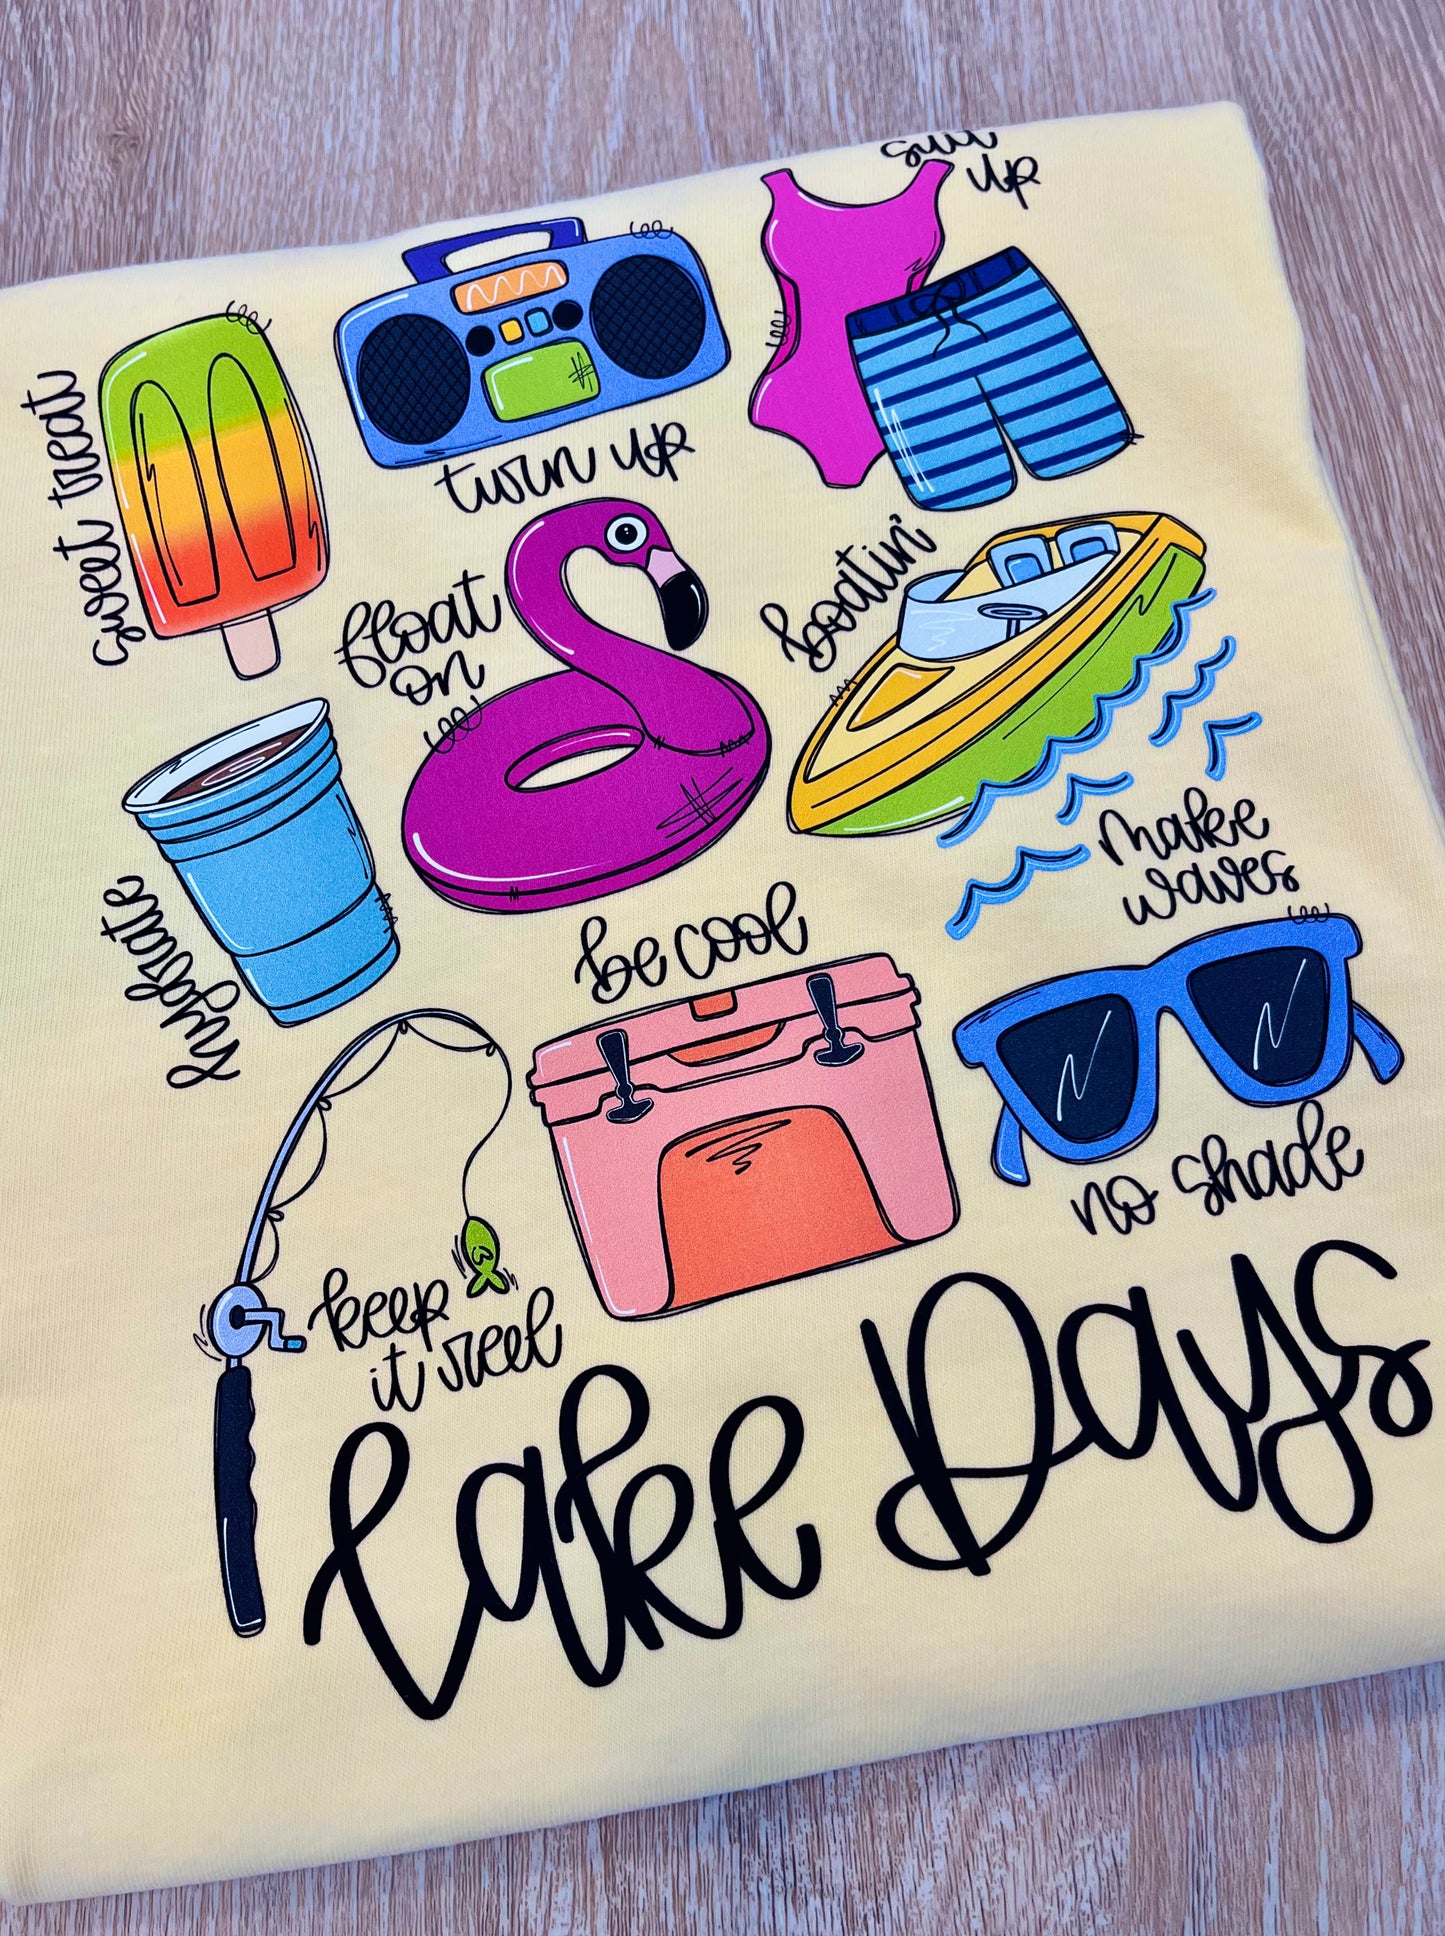 suit
up
sweet treat
turn up
float
on
boatin'
make
waves
hydrate
be cool
no shade
keep
it reel
Lake Days